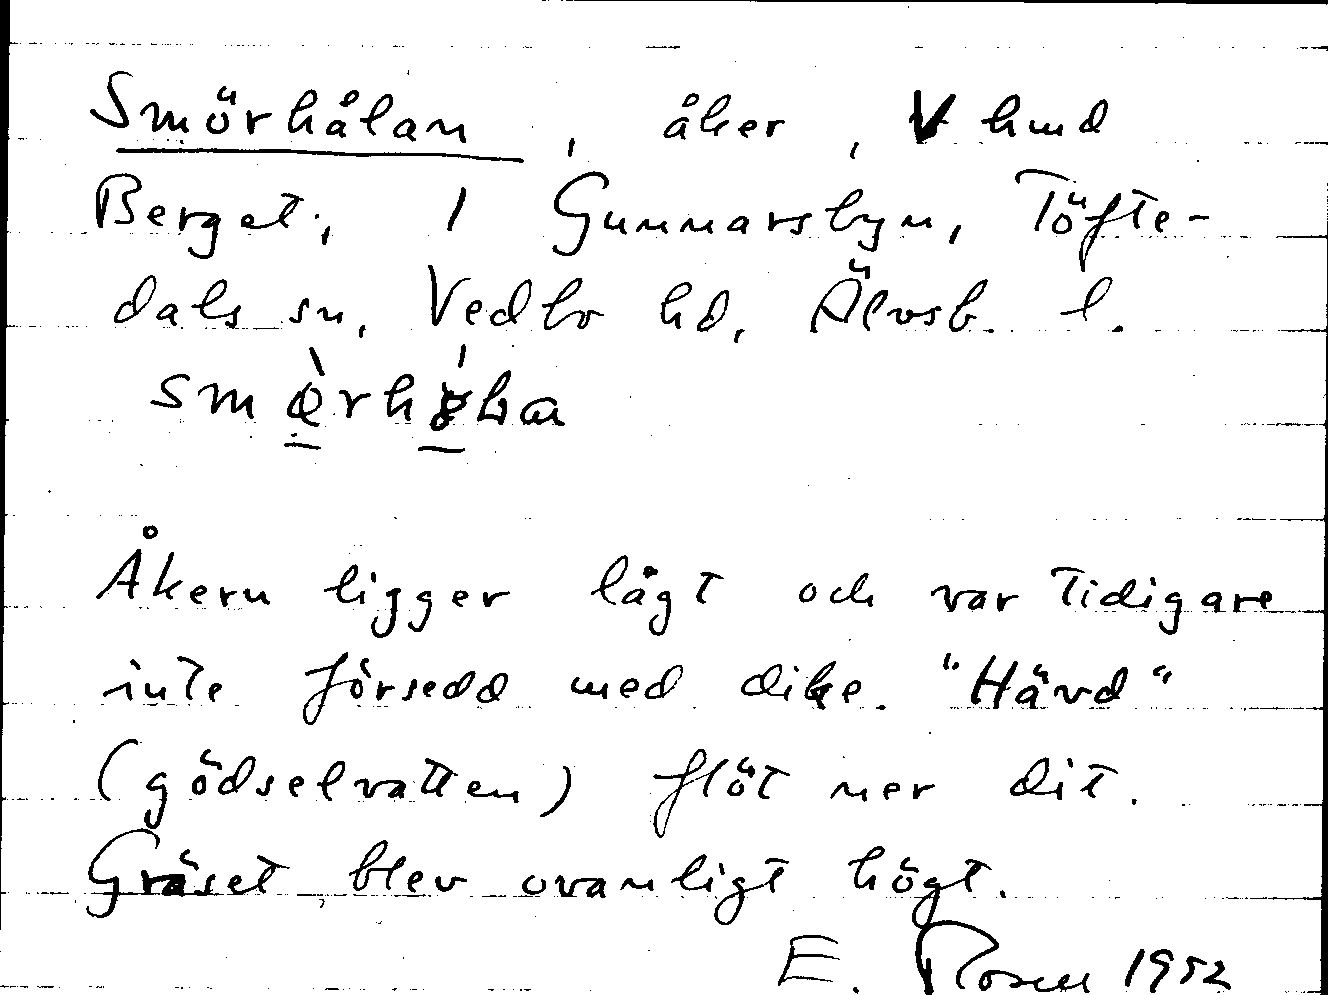 Smörhålan, åker, V hmd
Berget, 1 Gunnarsbyn, Töfte-
dals sn, Vedbo hd, Älvsb. l.
Åkern ligger lågt och var tidigare
inte försedd med dike. "Hävd"
(gödselvatten) flöt ner dit.
Gräset blev ovanligt högt.
E. Rosen 1952